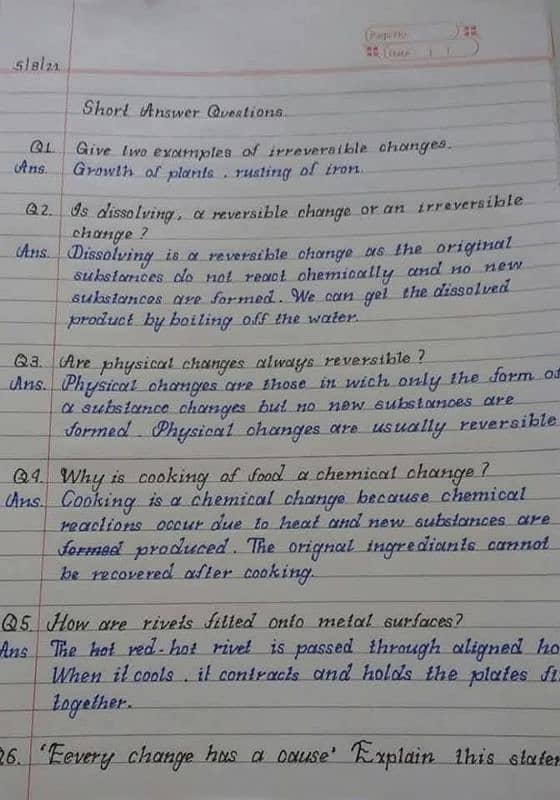 Page No.
Date / /
5/8/21
Short Answer Questions.
Q1. Give two examples of irreversible changes.
Ans. Growth of plants, rusting of iron.
Q2. Is dissolving, a reversible change or an irreversible
change?
Ans. Dissolving is a reversible change as the original
substances do not react chemically and no new
substances are formed. We can get the dissolved
product by boiling off the water.
Q3. Are physical changes always reversible?
Ans. Physical changes are those in wich only the form of
a substance changes but no new substances are
formed. Physical changes are usually reversible
Q4. Why is cooking of food a chemical change?
Ans. Cooking is a chemical change because chemical
reactions occur due to heat and new substances are
formed produced. The orignal ingrediants cannot
be recovered after cooking.
Q5. How are rivets fitted onto metal surfaces?
Ans The hot red-hot rivet is passed through aligned ho
When it cools, it contracts and holds the plates fi
together.
Q6. 'Eevery change has a cause' Explain this state